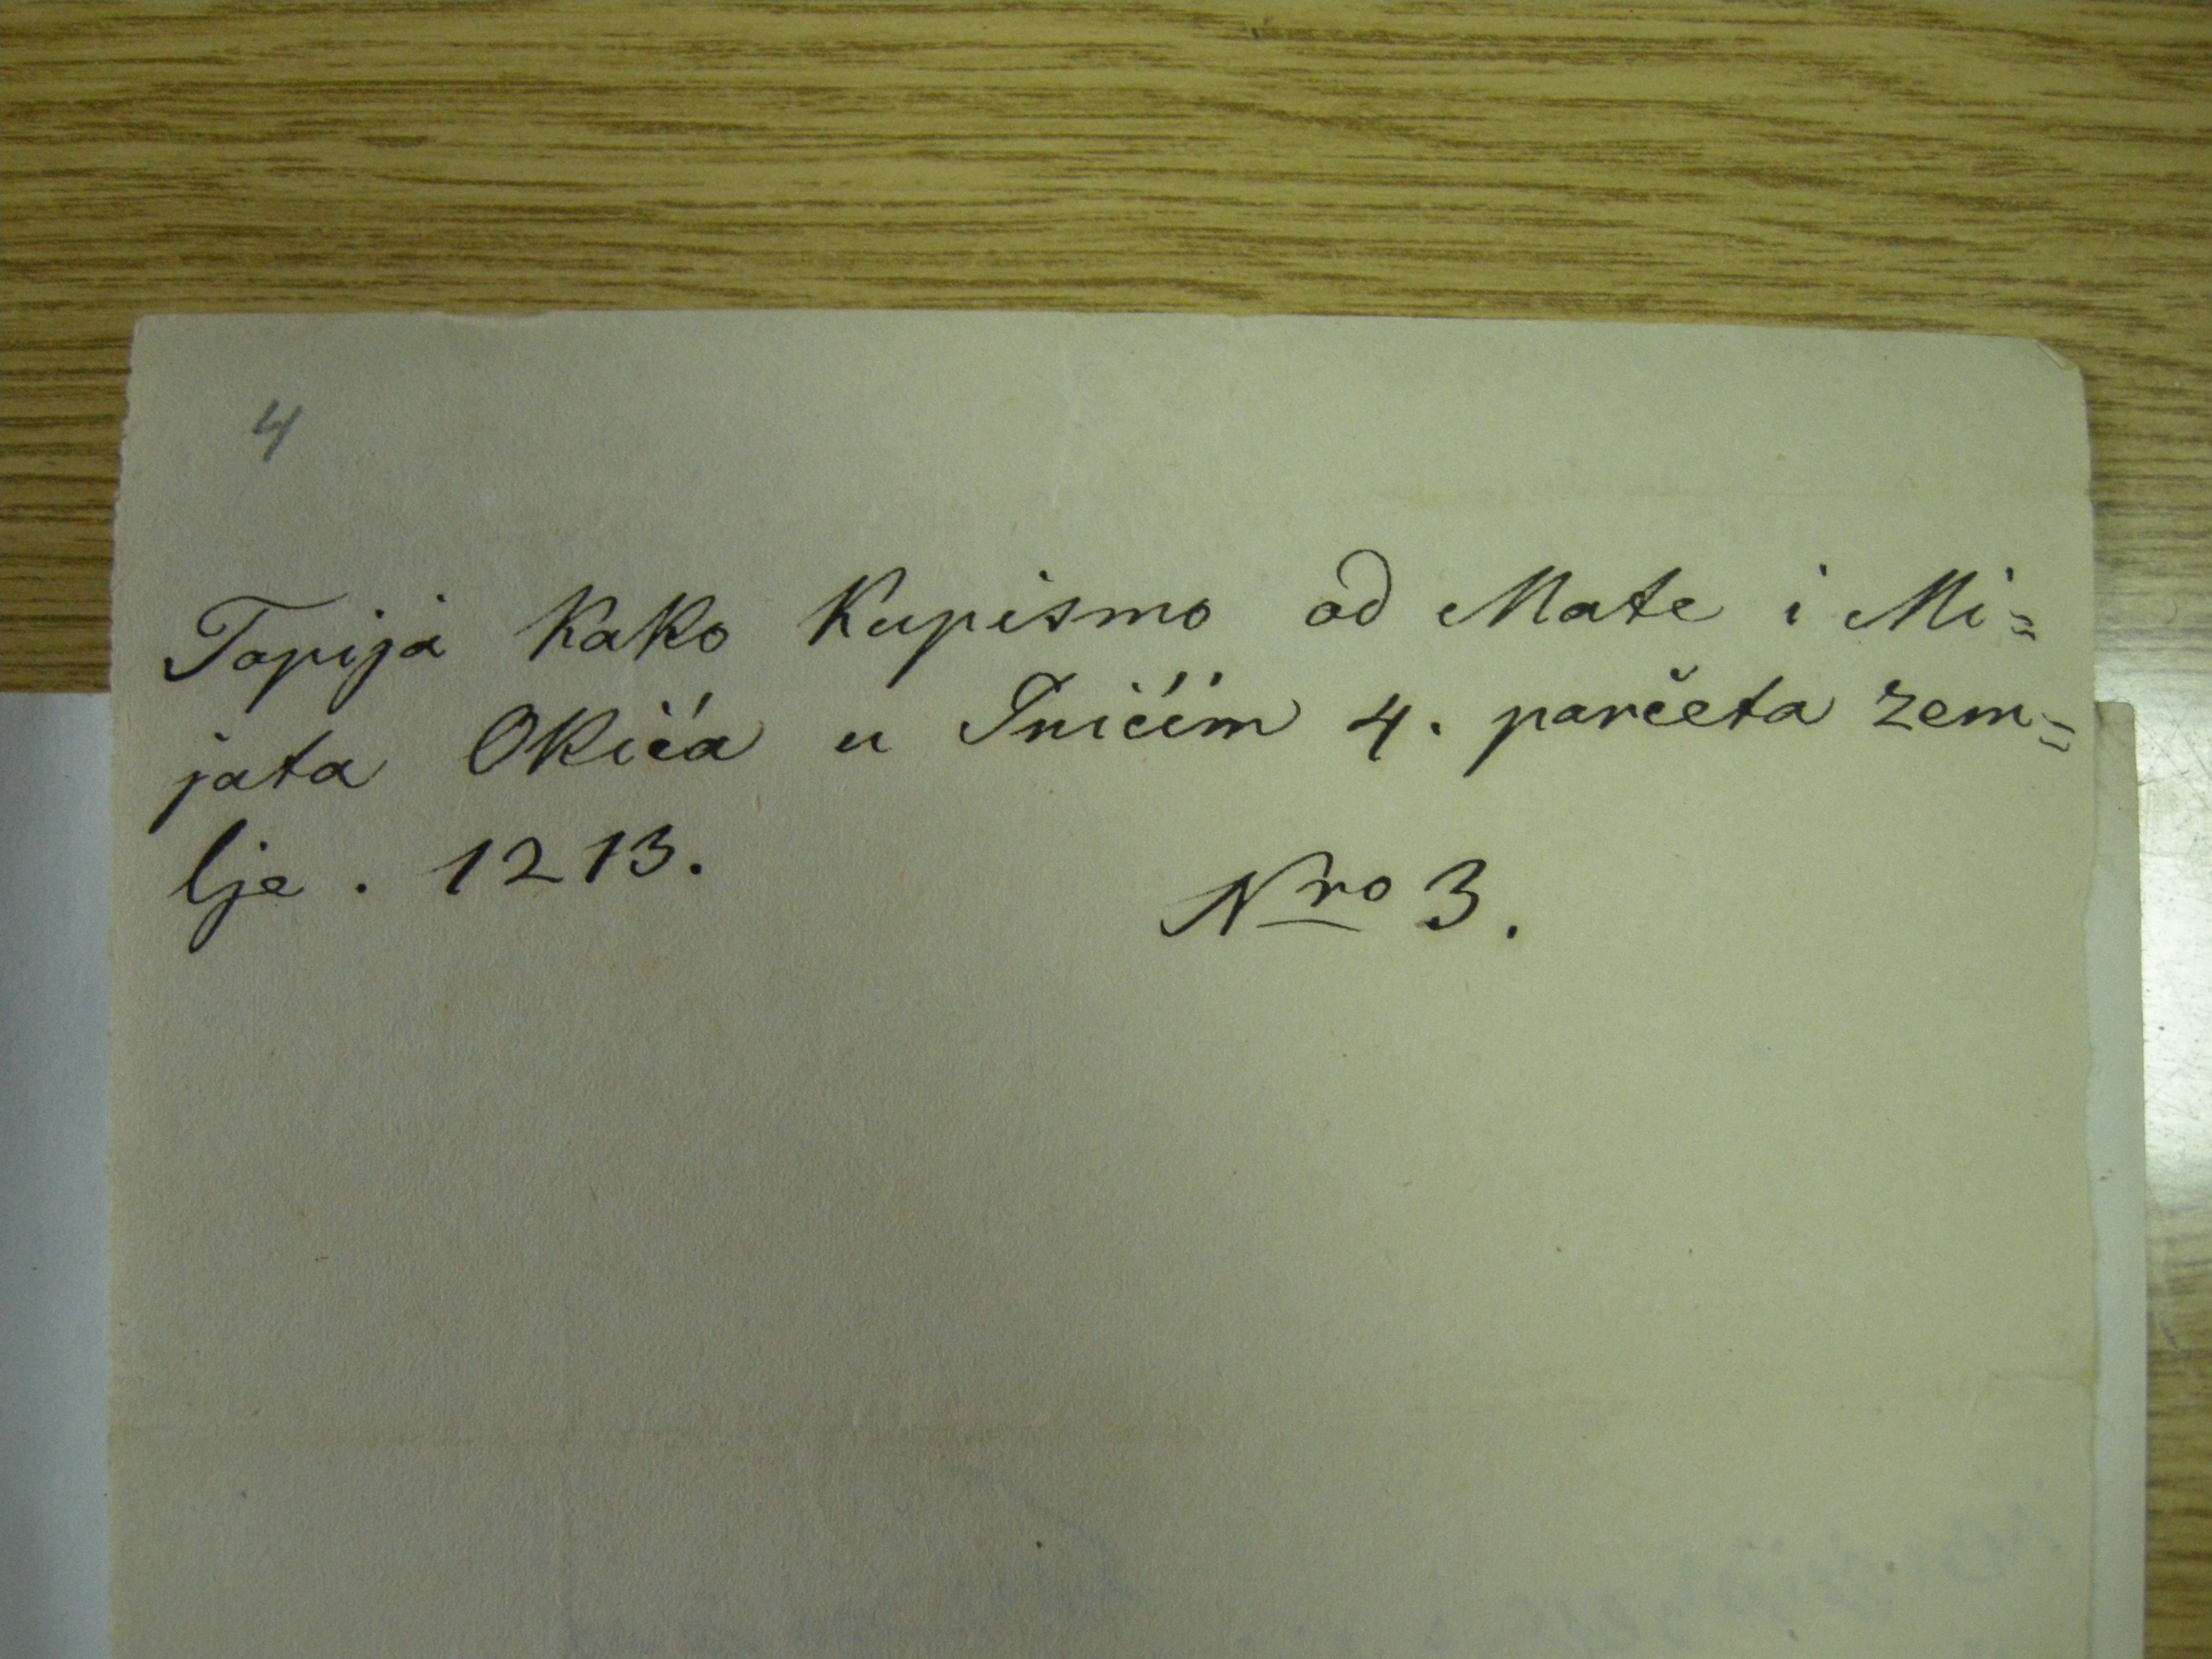 4
Tapija kako kupismo od Mate i Mi=
jata Okića u Tnićim 4. parčeta zem=
lje. 1213.
Nro 3.